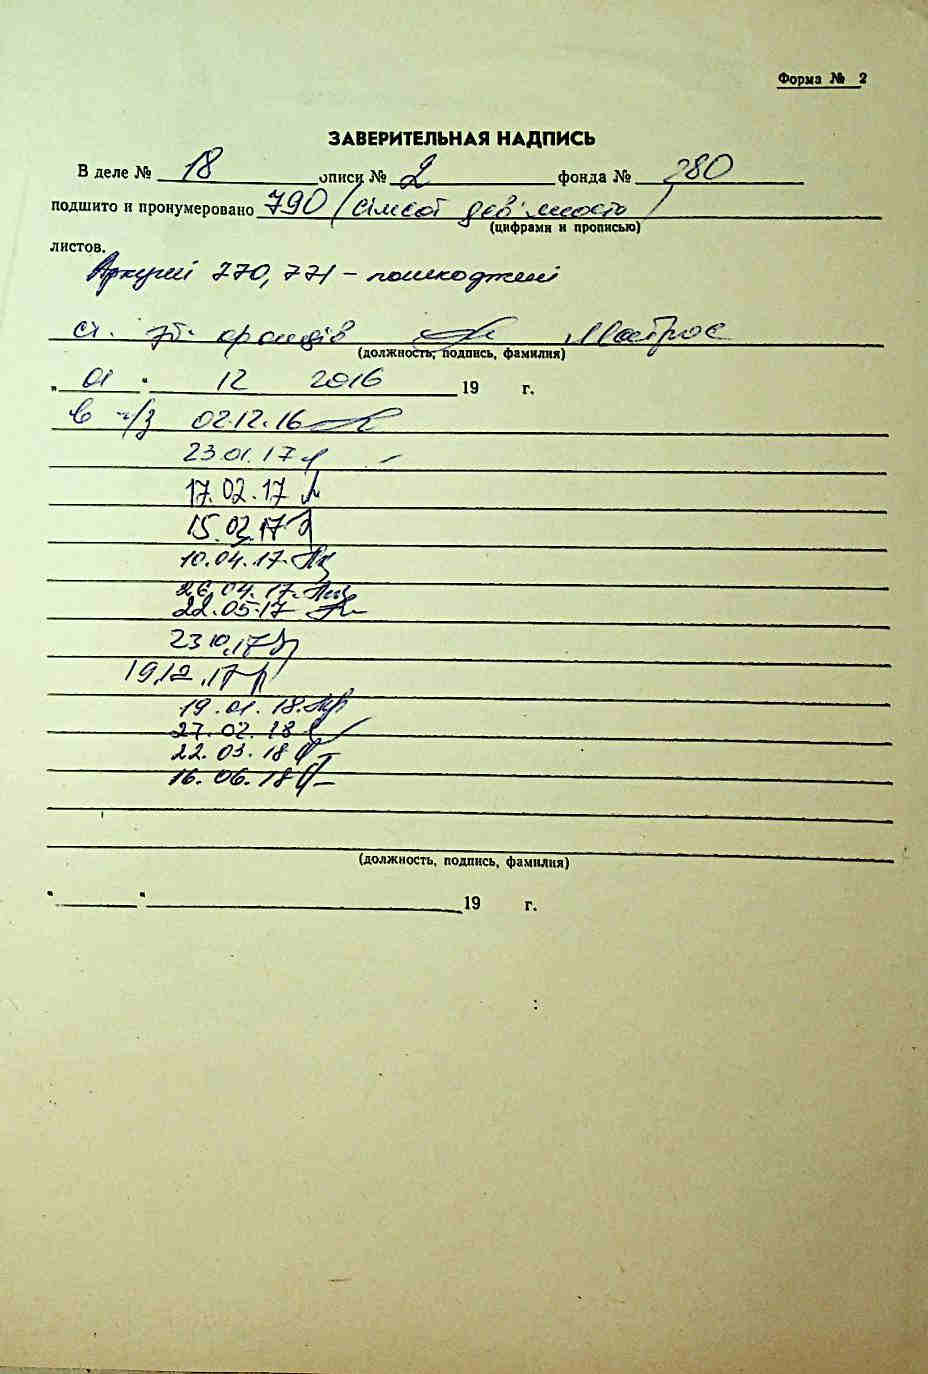 Форма № 2
ЗАВЕРИТЕЛЬНАЯ НАДПИСЬ
В деле № 18 описи № 2 фонда № 280
подшито и пронумеровано 790 (сімсот дев'яносто)
(цифрами и прописью)
листов.
Аркуші 770, 771 - пошкоджені
ст. зб. фондів Матрос
(должность, подпись, фамилия)
" 01 " 12 2016 19 г.
в ч/з 02.12.16
23.01.17
17.02.17
15.03.17
10.04.17.
26.04.17.
22.05.17
23 10.17
19.12.17
19.01.18.
27.02.18
22.03.18
16.06.18
(должность, подпись, фамилия)
" " 19 г.